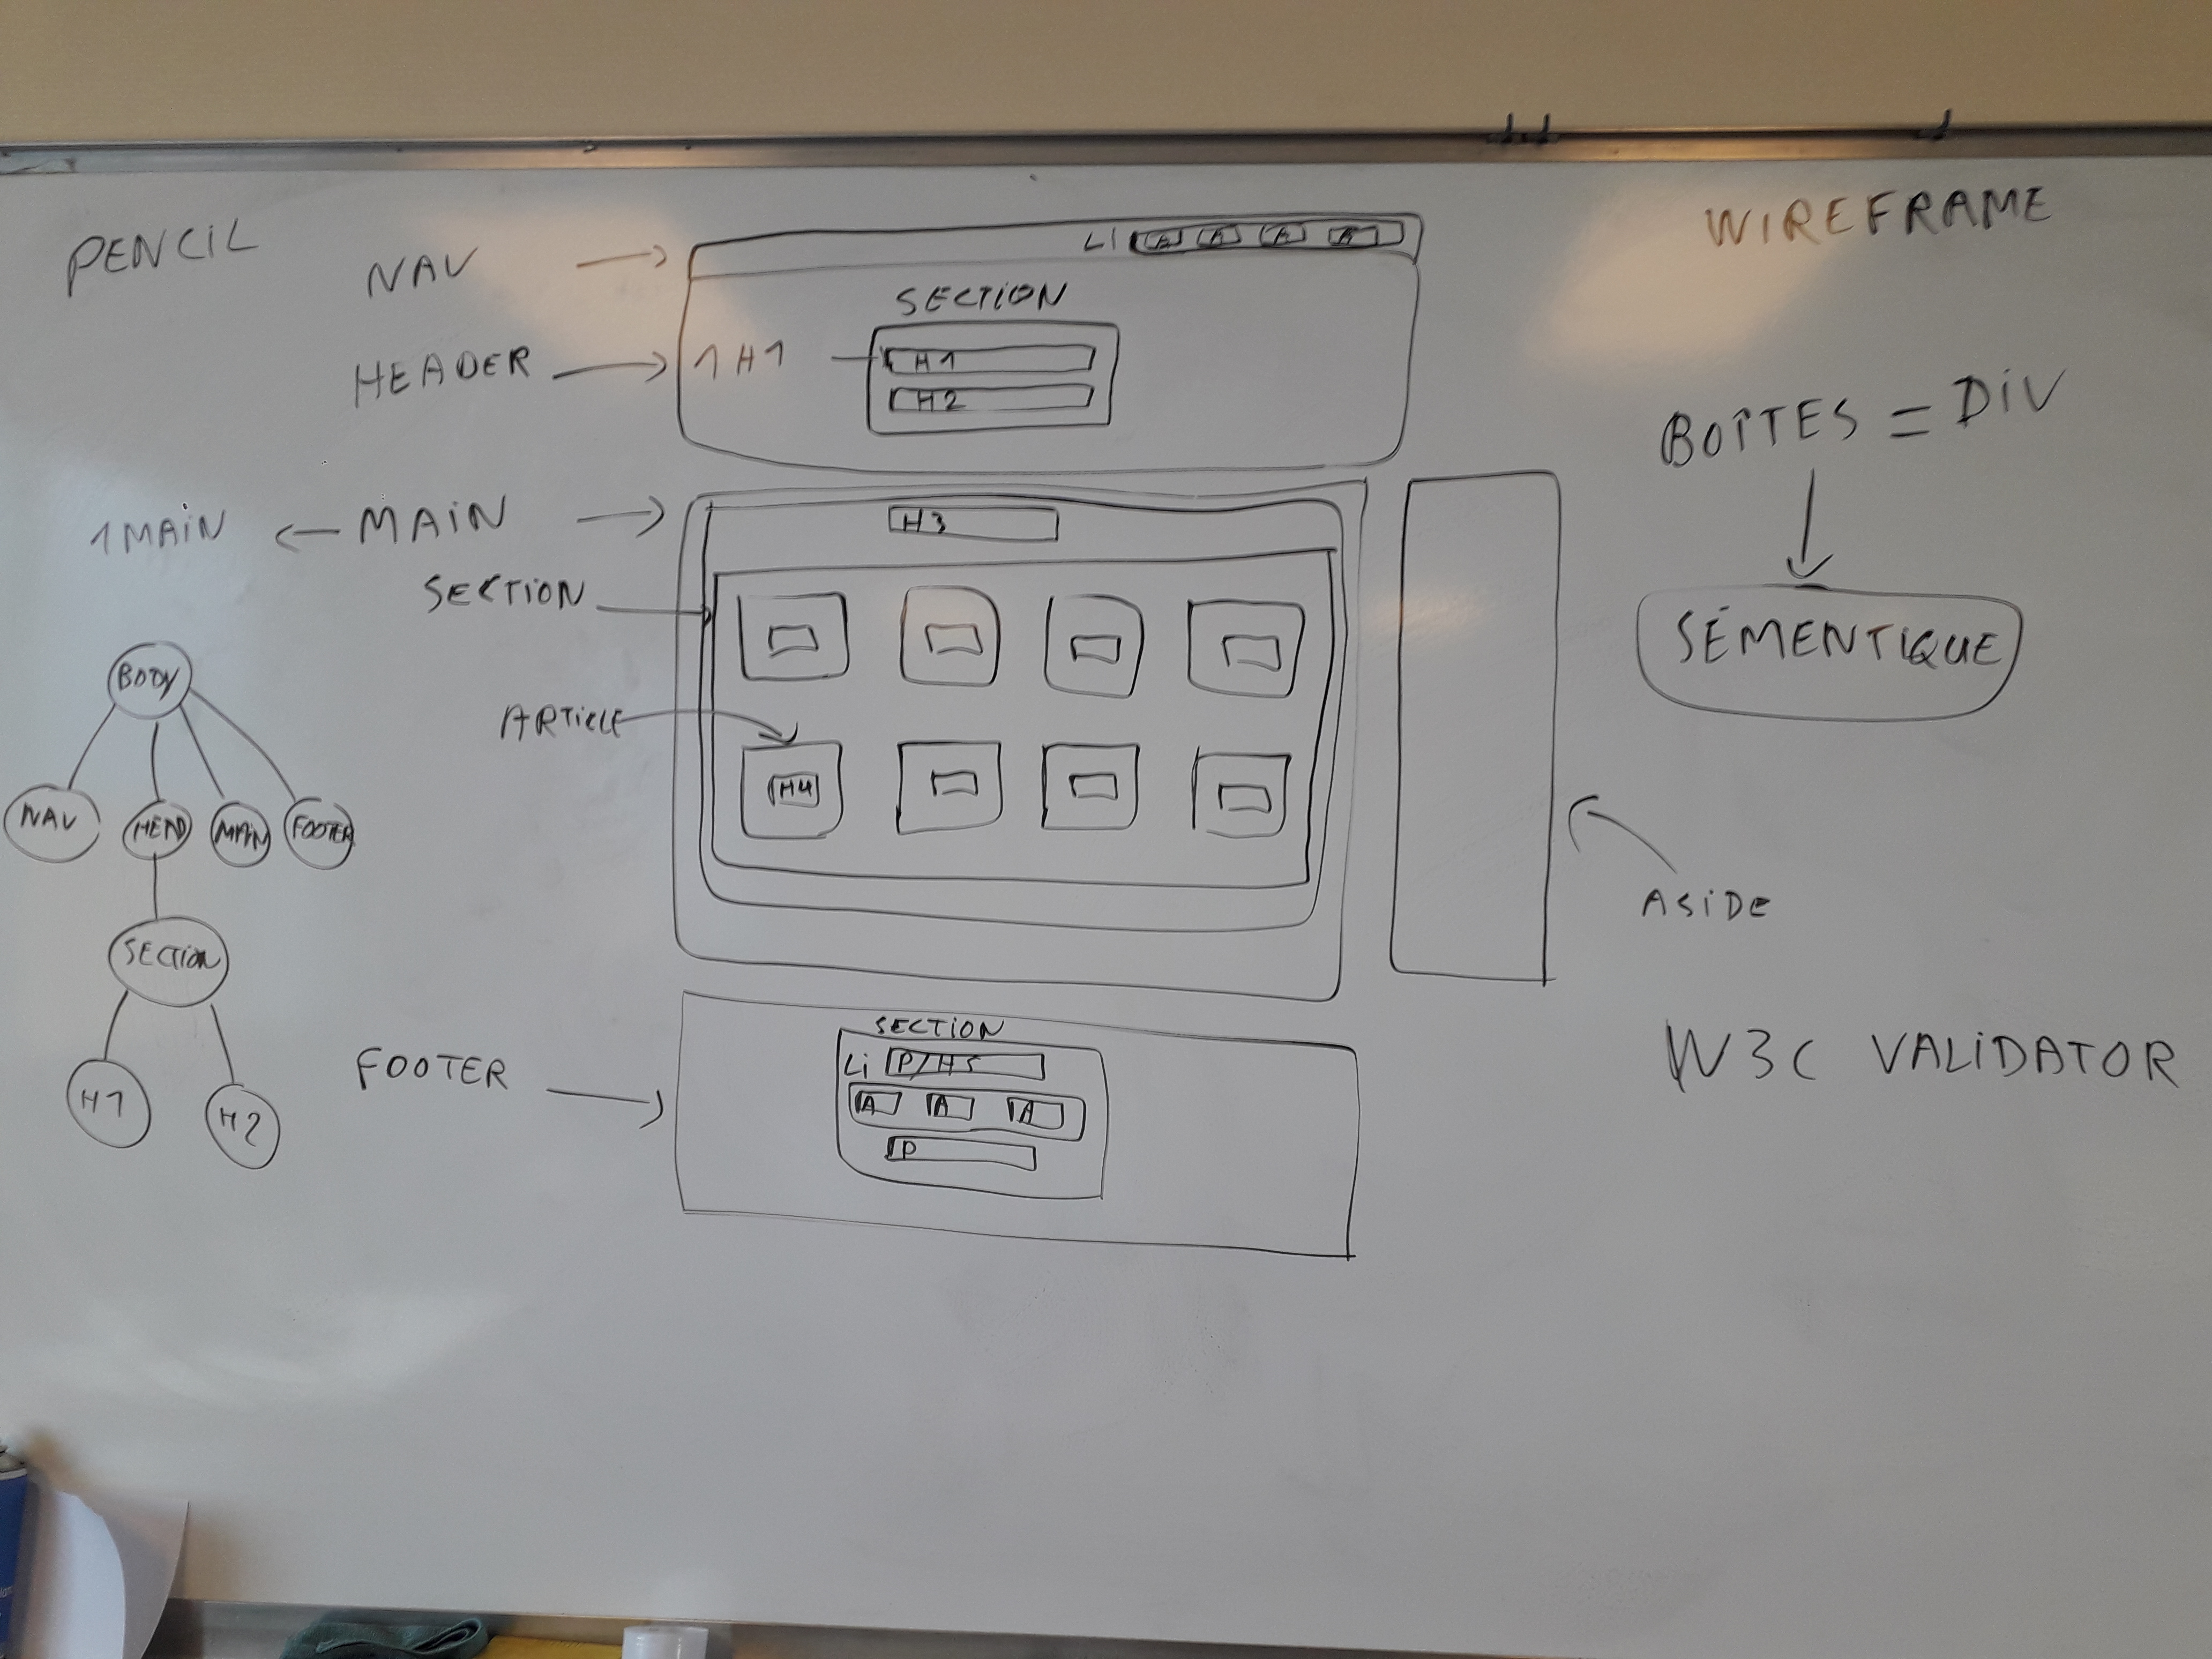 PENCIL
WIREFRAME
NAV
LI A A A A
SECTION
HEADER
1 H1
H1
H2
BOÎTES = DIV
SÉMENTIQUE
1 MAIN
MAIN
H3
SECTION
ARTICLE
H4
ASIDE
BODY
NAV
HEAD
MAIN
FOOTER
SECTION
H1
H2
FOOTER
SECTION
Li P/H5
A A A
P
W3C VALIDATOR